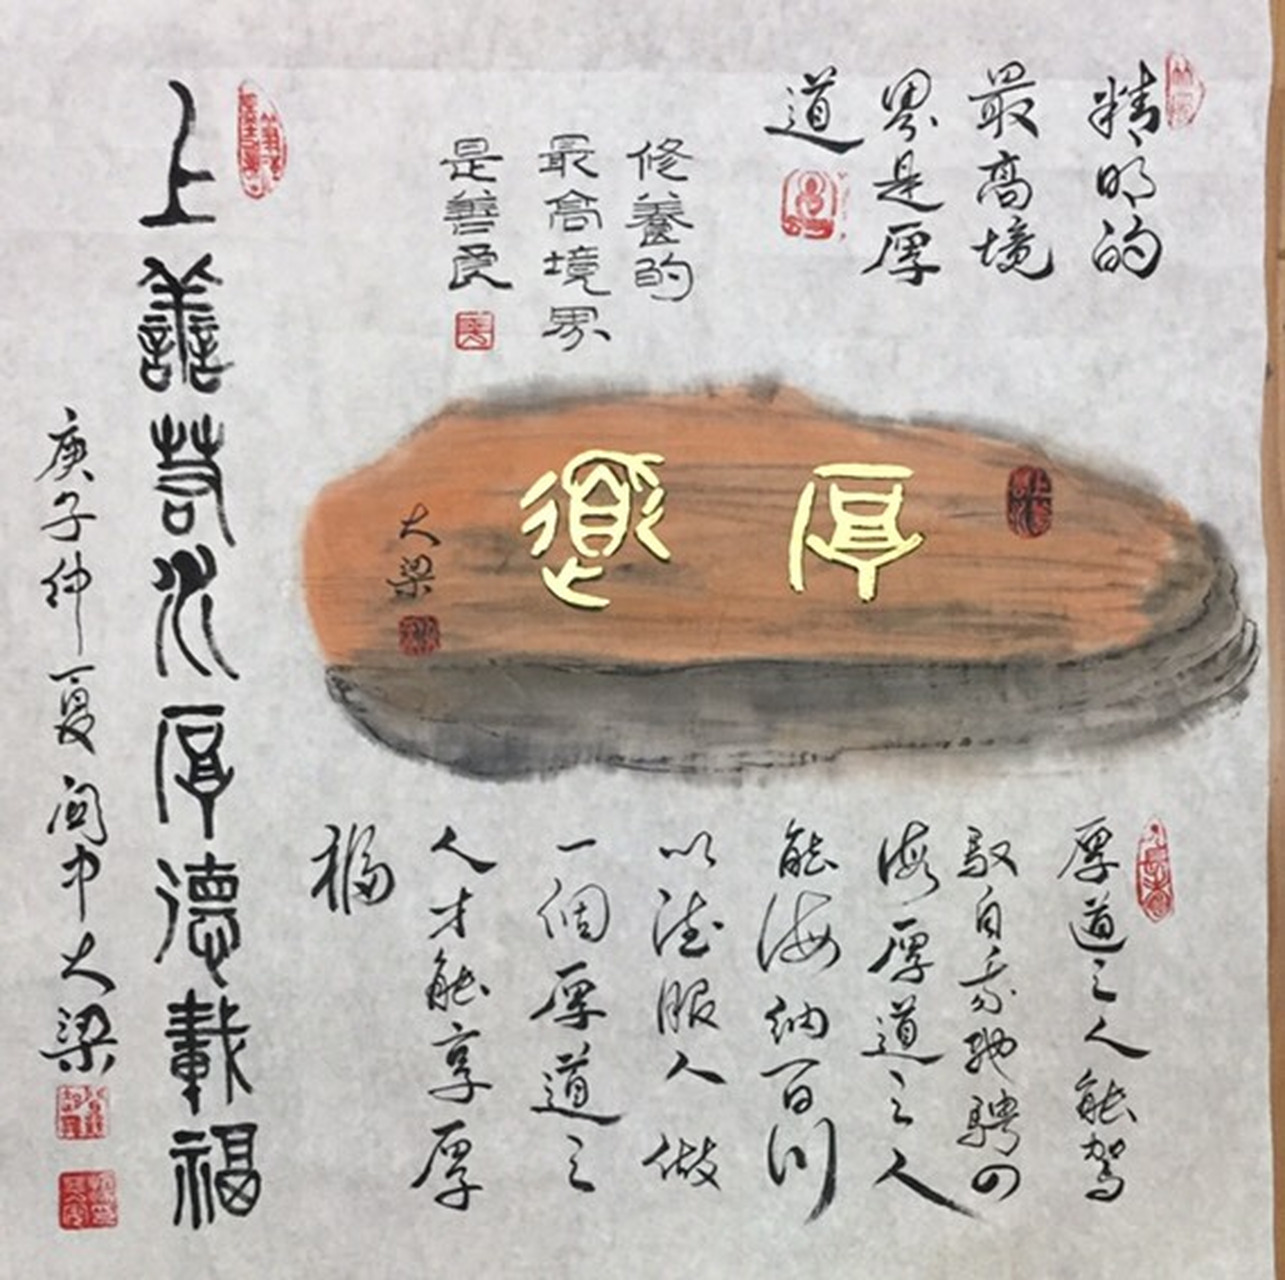 精明的
最高境
界是厚
道
修養的
最高境界
是善良
厚道
大梁
厚道之人能駕
馭自我馳騁四
海厚道之人
能海納百川
以德服人做
一個厚道之
人才能享厚
福
上善若水厚德載福
庚子仲夏閬中大梁